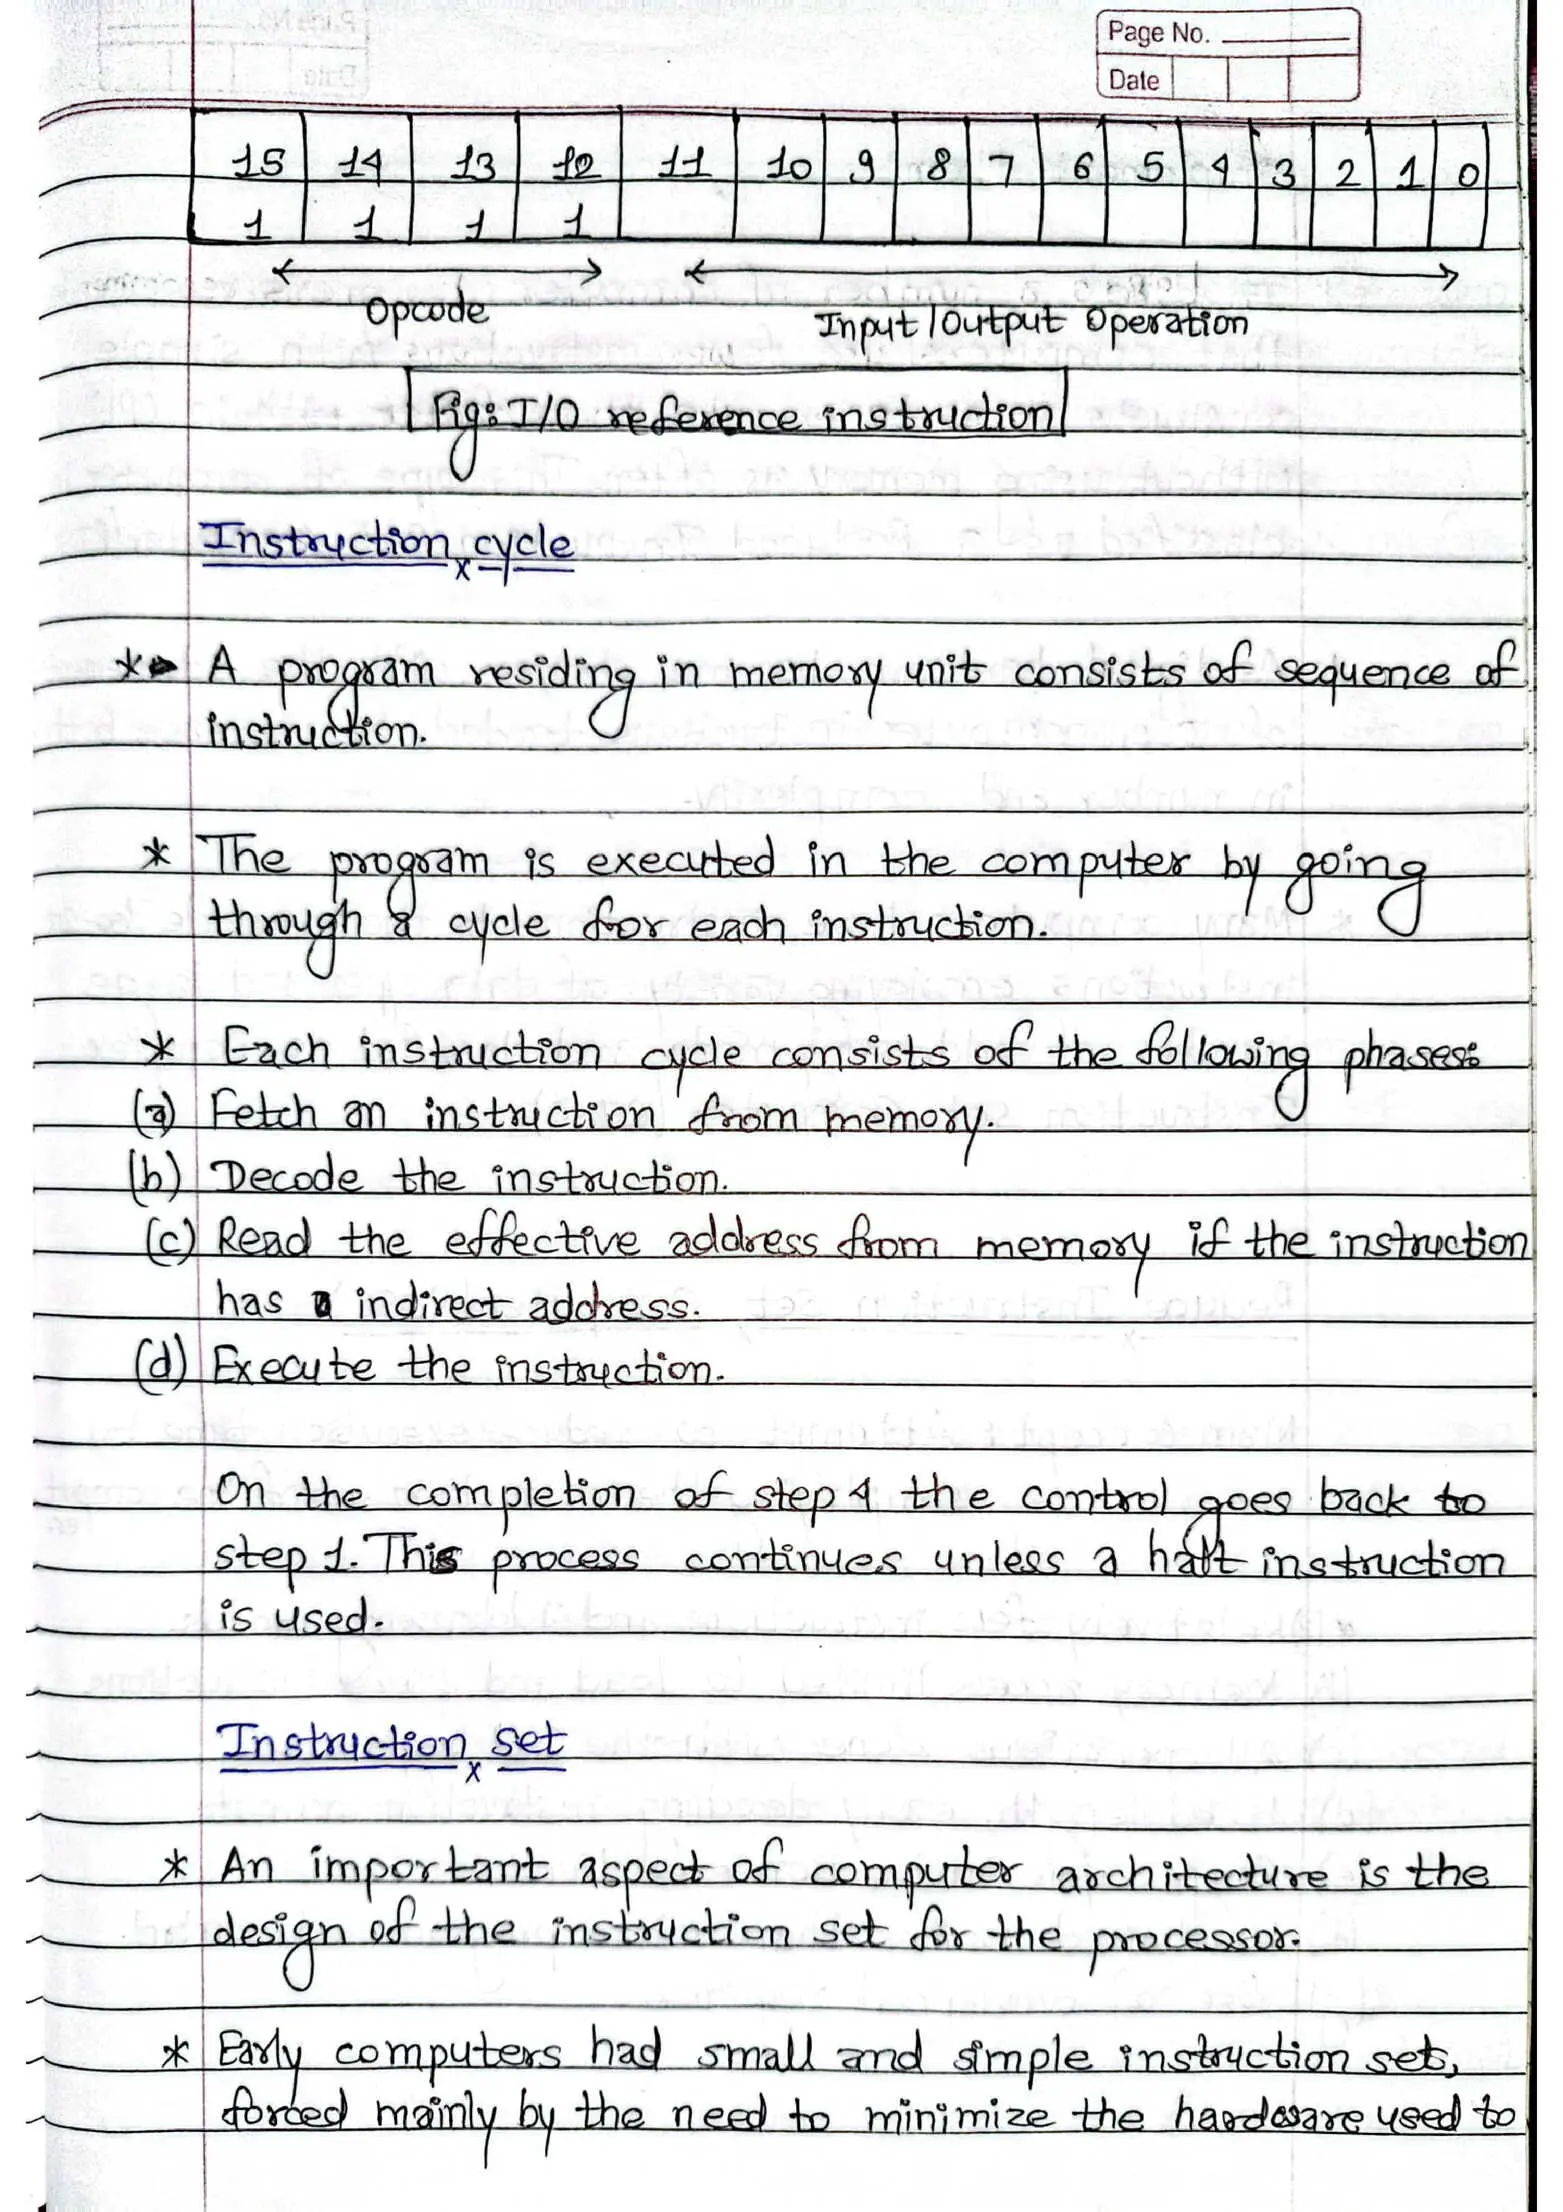 Page No.
Date
15 14 13 12 11 10 9 8 7 6 5 4 3 2 1 0
1 1 1 1
Opcode Input/Output Operation
Fig: I/O reference instruction
Instruction cycle
* A program residing in memory unit consists of sequence of
instruction.
* The program is executed in the computer by going
through a cycle for each instruction.
* Each instruction cycle consists of the following phases:
(a) Fetch an instruction from memory.
(b) Decode the instruction.
(c) Read the effective address from memory if the instruction
has a indirect address.
(d) Execute the instruction.
On the completion of step 4 the control goes back to
step 1. This process continues unless a halt instruction
is used.
Instruction set
* An important aspect of computer architecture is the
design of the instruction set for the processor.
* Early computers had small and simple instruction set,
forced mainly by the need to minimize the hardware used to